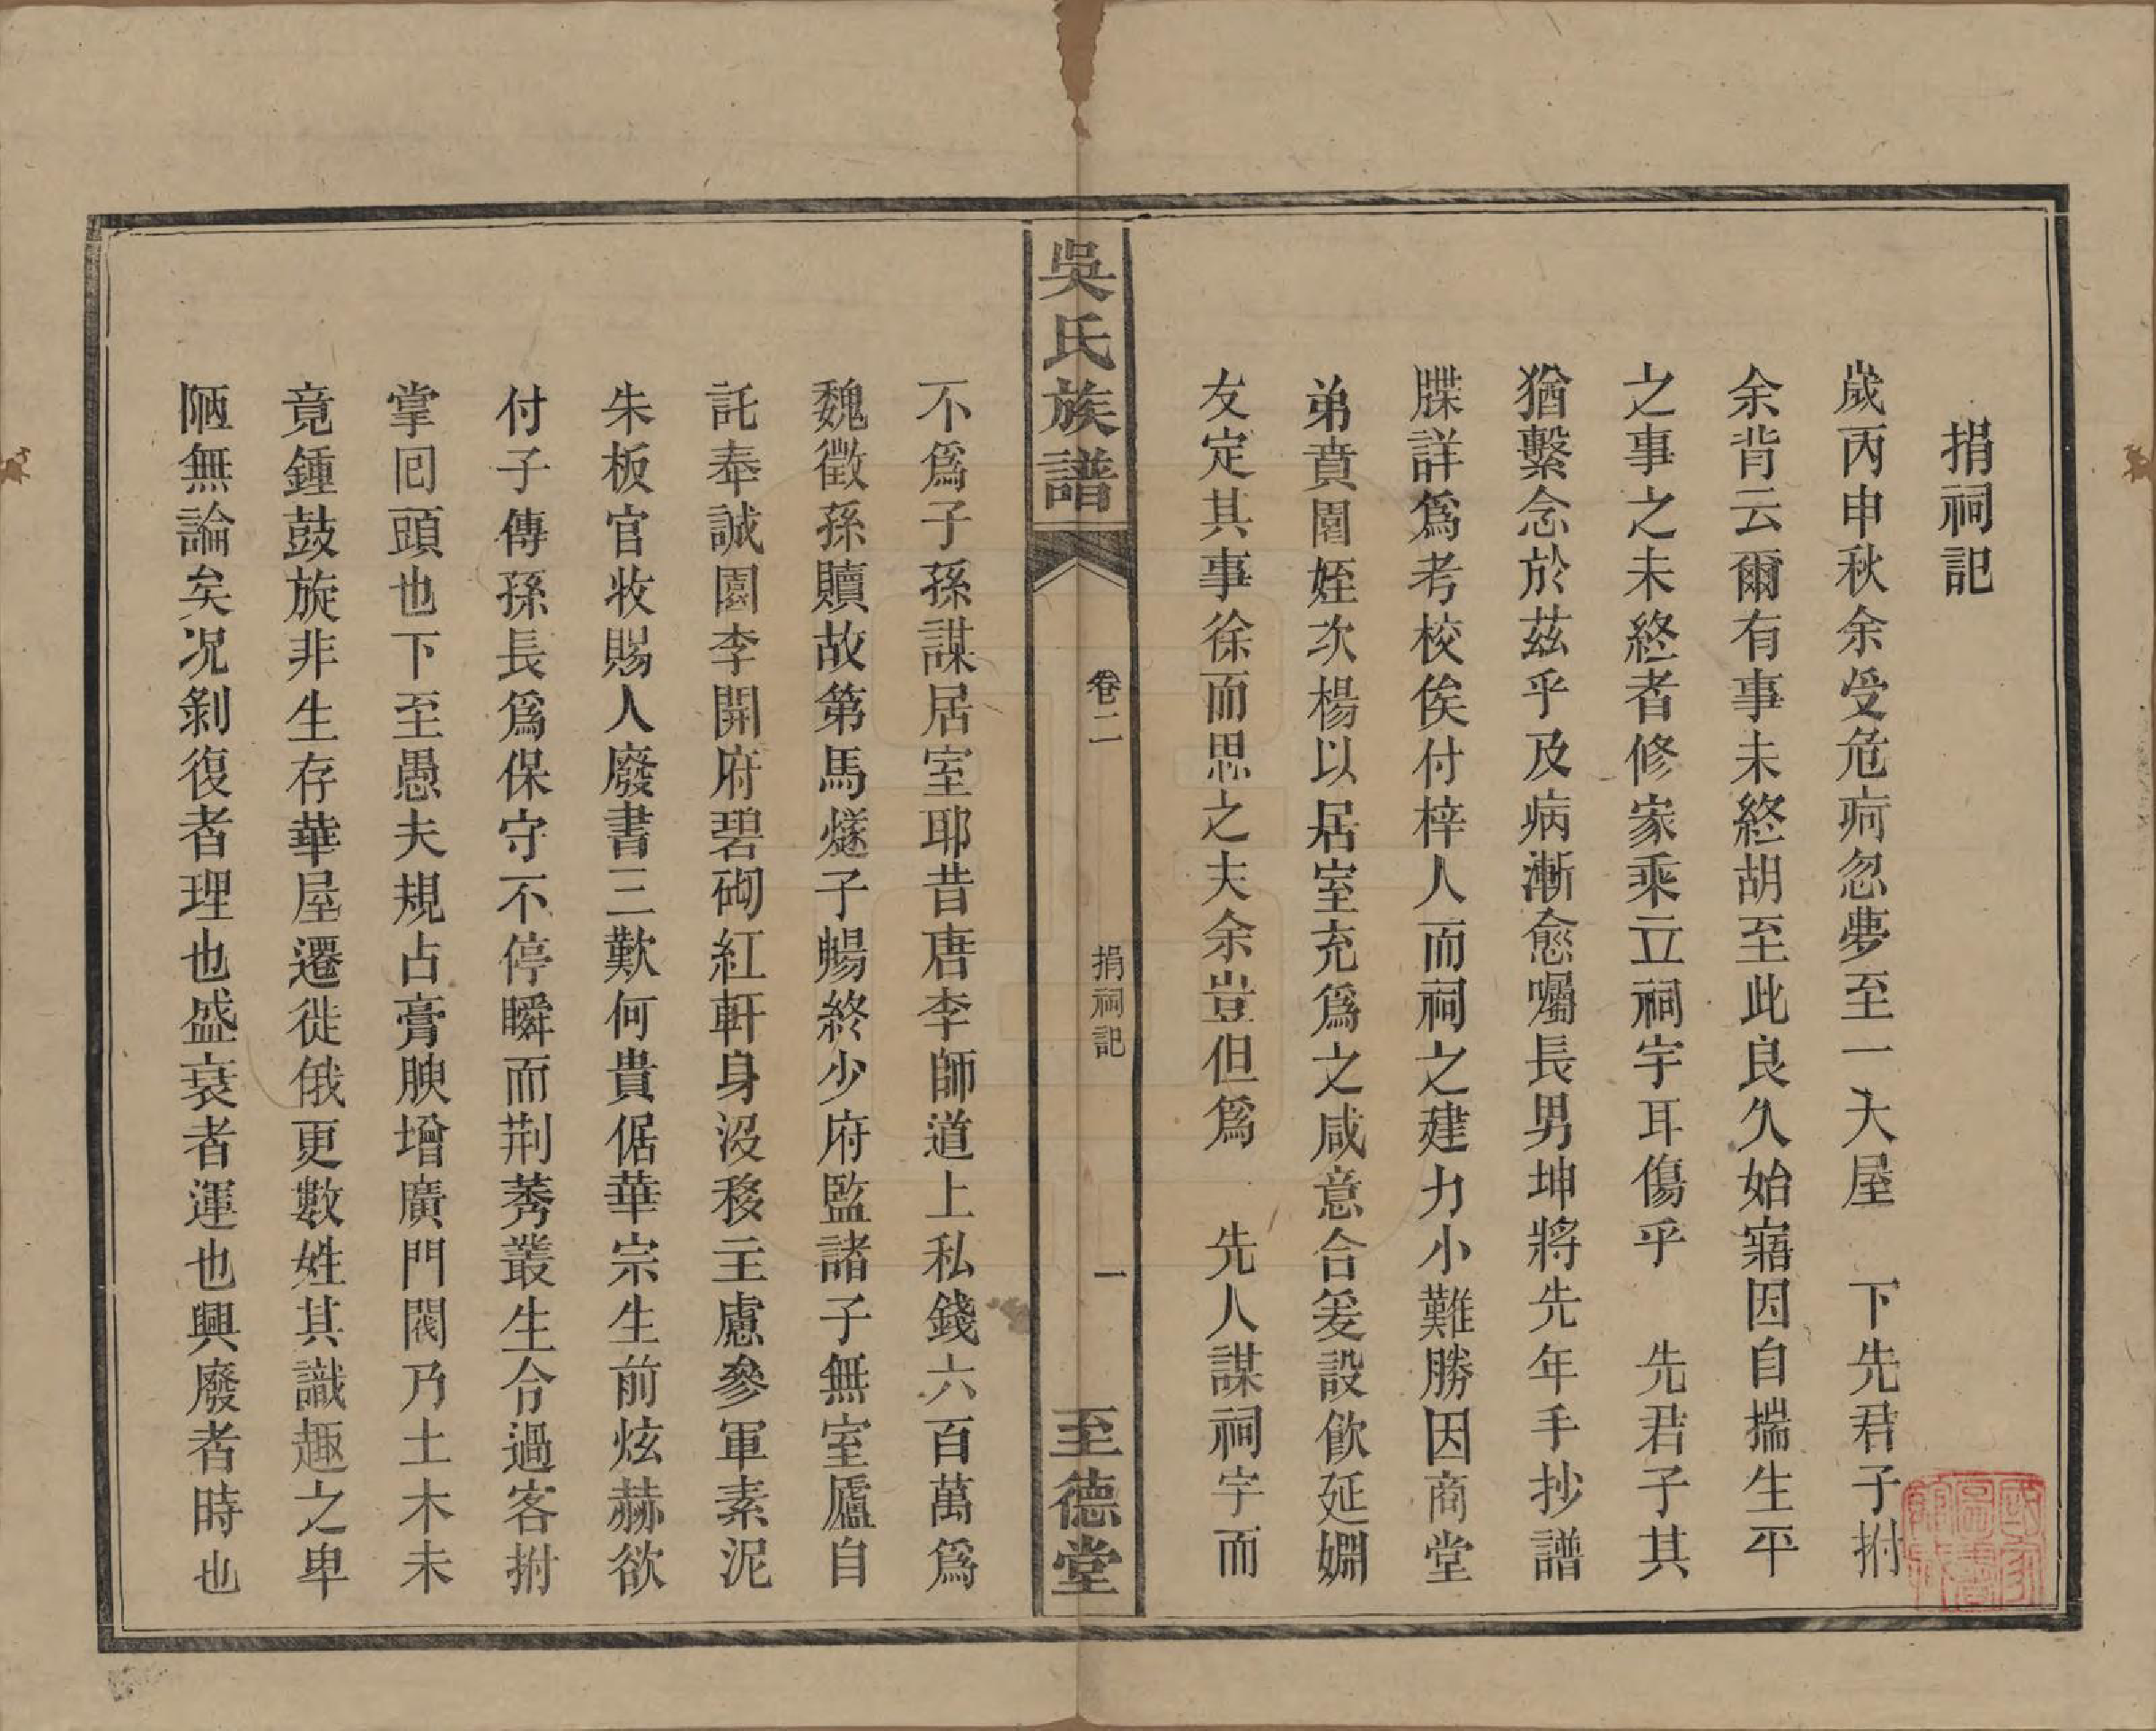 捐祠記
歲丙申秋余受危疴忽夢至一大屋　下先君子拊
余背云爾有事未終胡至此良久始寤因自揣生平
之事之未終者修家乘立祠宇耳傷乎　先君子其
猶繫念於茲乎及病漸愈囑長男坤將先年手抄譜
牒詳爲考校俟付梓人而祠之建力小難勝因商堂
弟賁園姪次楊以居室充爲之咸意合爰設飲延嫻
友定其事徐而思之夫余豈但爲　先人謀祠宇而
吳氏族譜
卷二
捐祠記
一
至德堂
不爲子孫謀居室耶昔唐李師道上私錢六百萬爲
魏徵孫贖故第馬燧子暢終少府監諸子無室廬自
託奉誠園李開府碧砌紅軒身沒移主慮參軍素泥
朱板官收賜人廢書三歎何貴倨華宗生前炫赫欲
付子傳孫長爲保守不停瞬而荆莠叢生令過客拊
掌囘頭也下至愚夫規占膏腴增廣門閥乃土木未
竟鍾鼓旋非生存華屋遷徙俄更數姓其識趣之卑
陋無論矣况剝復者理也盛衰者運也興廢者時也